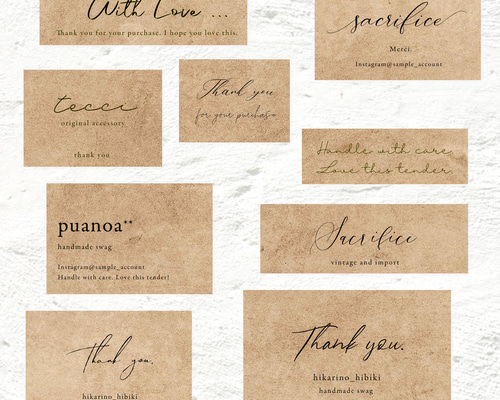 With Love ...
Thank you for your purchase. I hope you love this.
sacrifice
Merci.
Instagram@sample_account
tecci
original accessory
thank you
Thank you
for your purchase
Handle with care.
Love this tender
puanoa**
handmade swag
Instagram@sample_account
Handle with care. Love this tender!
Sacrifice
vintage and import
Thank you.
hikarino_hibiki
Thank you.
hikarino_hibiki
handmade swag